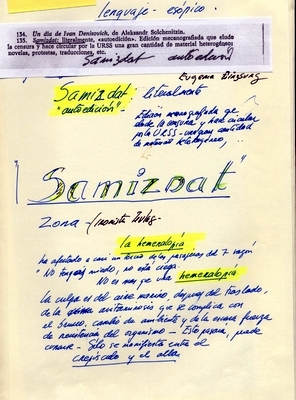 lenguaje - esópico.
134. Un día de Ivan Denisovich, de Aleksandr Solchenitsin.
135. Samizdat: literalmente, «autoedición». Edición mecanografiada que elude
la censura y hace circular por la URSS una gran cantidad de material heterogéneo:
novelas, protestas, traducciones, etc.
Samizdat autoedición
Eugenia Ginzburg
Samizdat: literalmente
"autoedición" -
Edición mecanografiada que
elude la censura y hace circular
por la URSS una gran cantidad
de material heterogéneo,
"Samizdat"
Zona -
la hemeralopía
ha afectado a casi un tercio de los pasajeros del 7 vagón
"No tengas miedo, no estás ciega.
No es más que una hemeralopía
La culpa es del
de la que se complica con
el cambio de ambiente y de la escasa fuerza
de resistencia del organismo - Esto pasará, puede
curarse - Sólo se manifiesta entre el
crepúsculo y el alba.